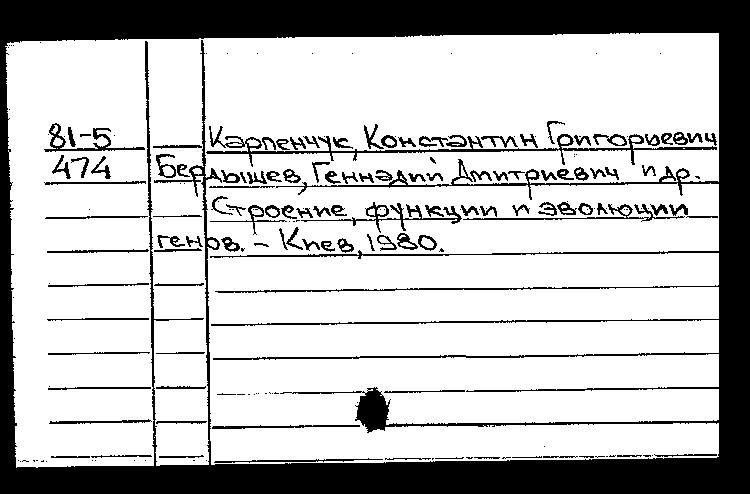 81-5 Карпенчук, Константин Григорьевич
474 Бердышев, Геннадий Дмитриевич и др.
Строение, функции и эволюции
генов. - Киев, 1980.